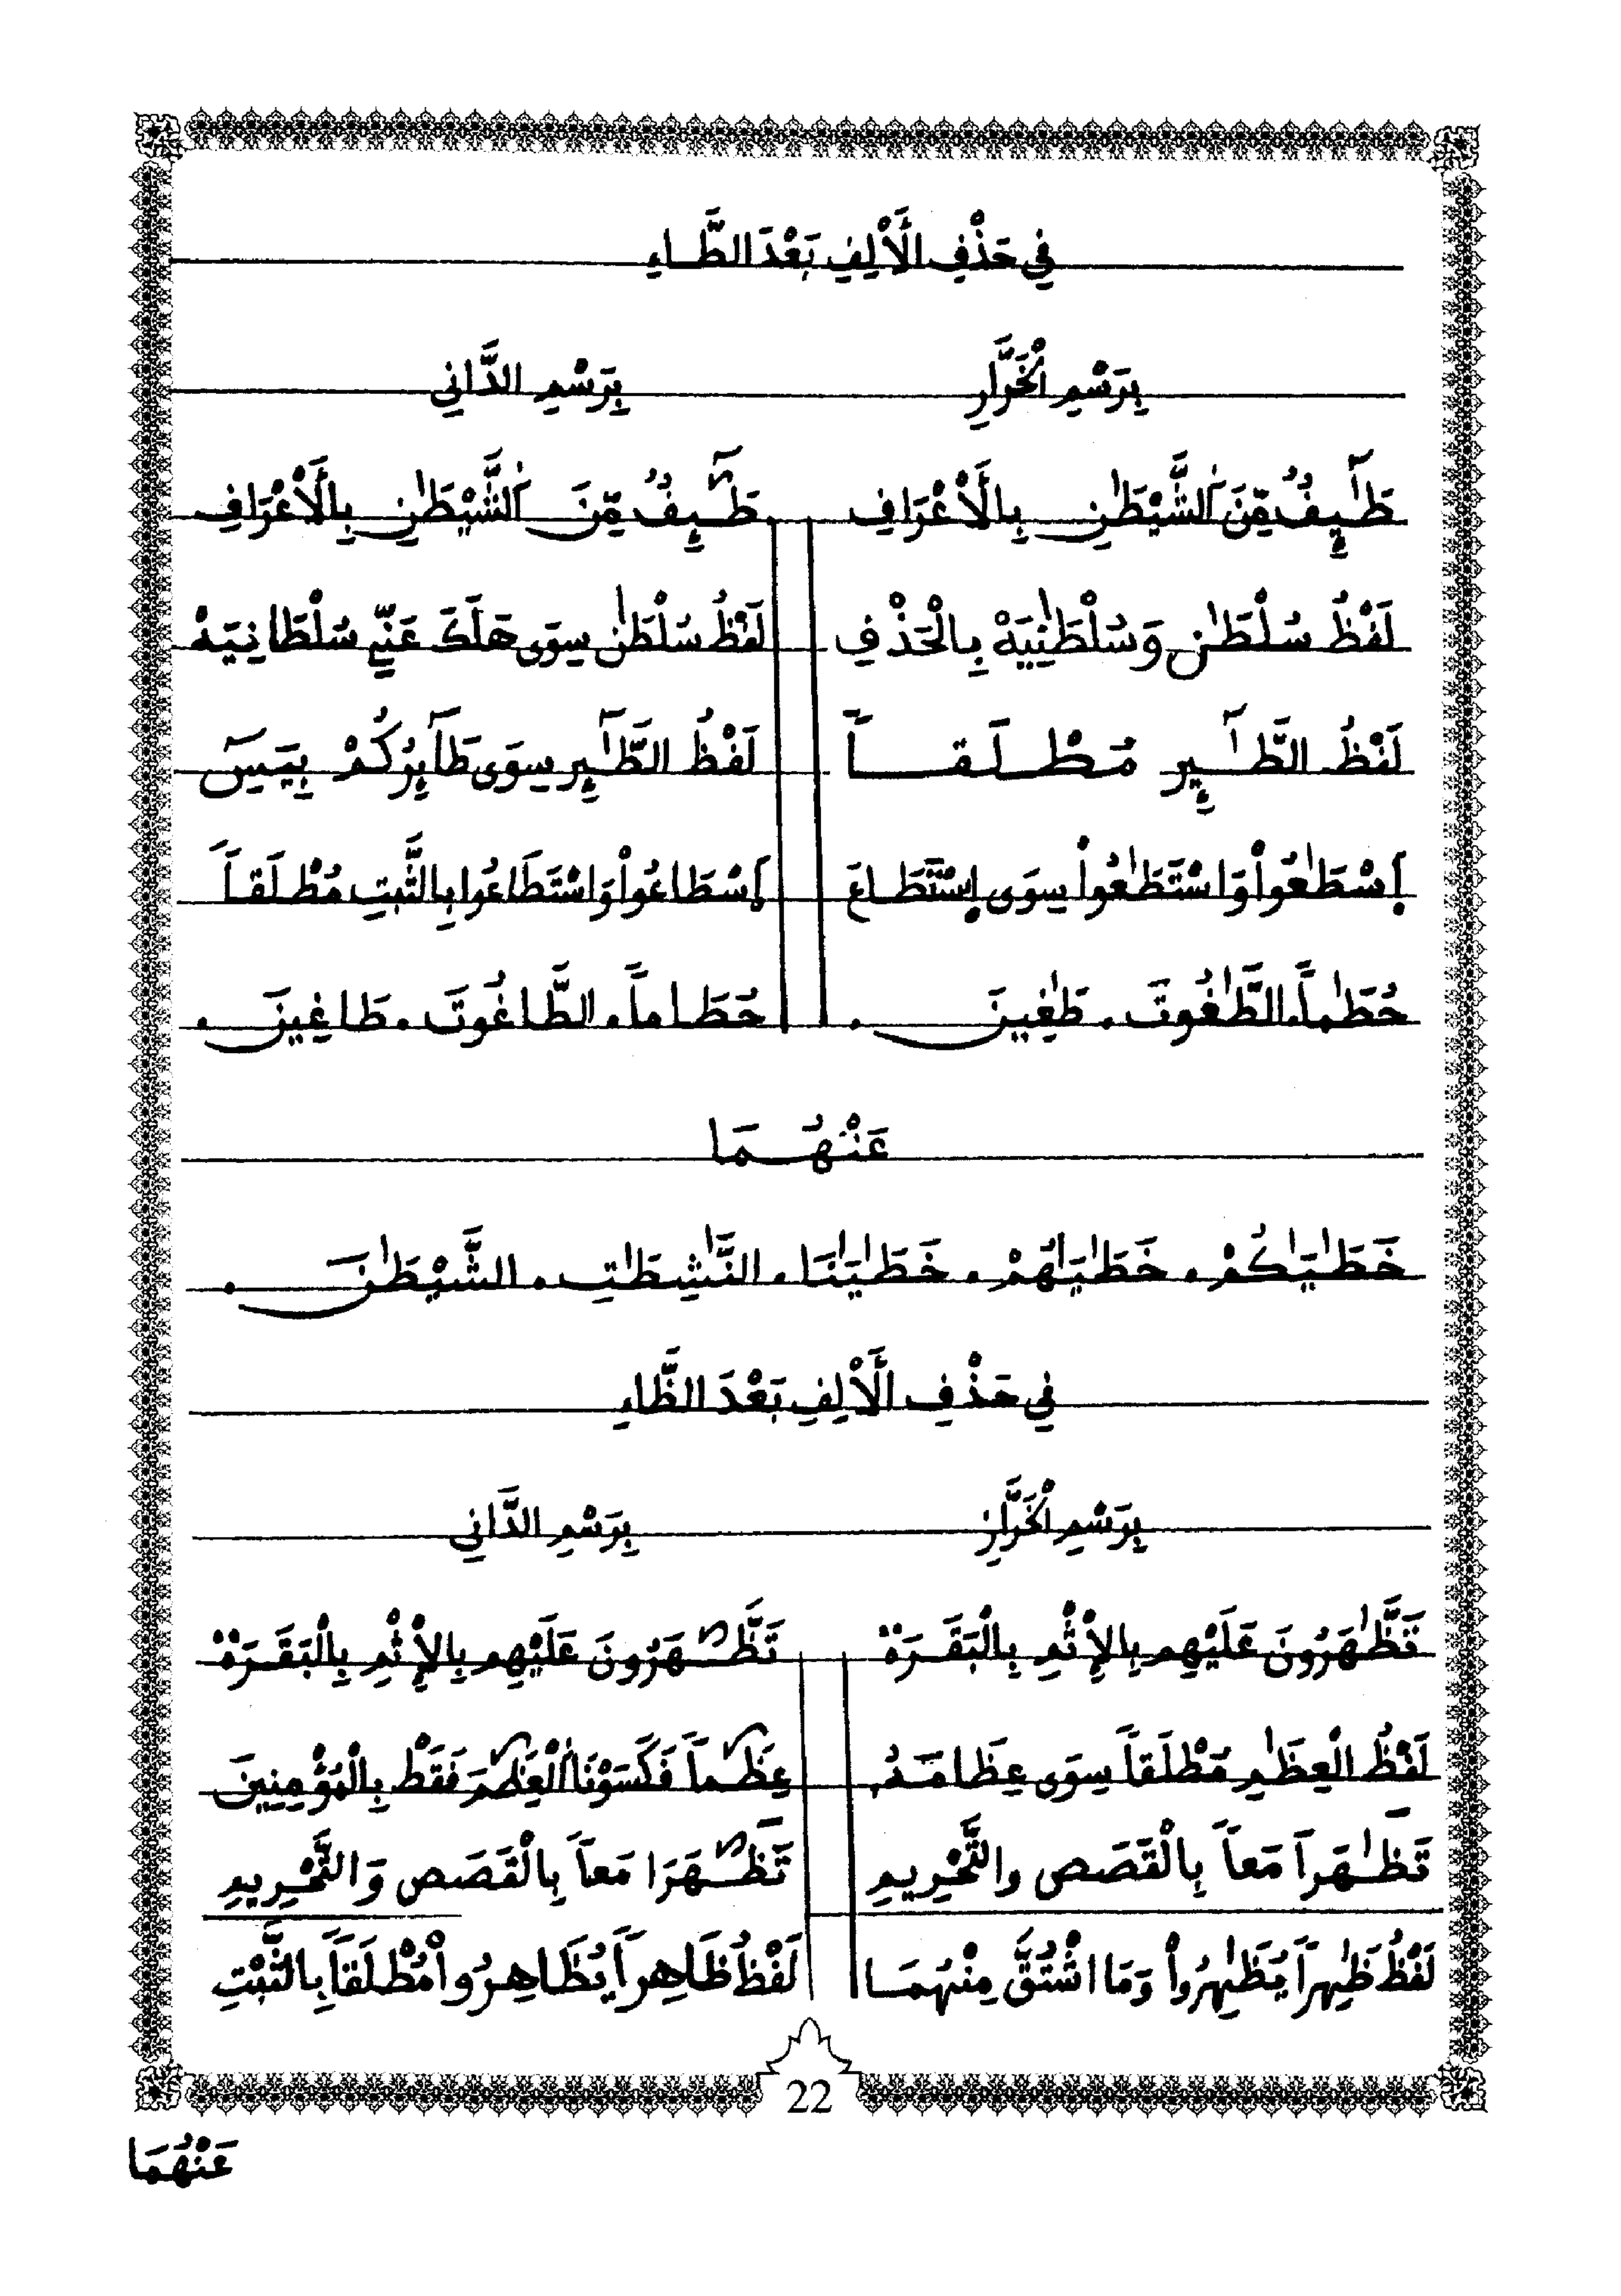 فِي حَذْفِ الْأَلِفِ بَعْدَ الطَّاءِ
بِرَسْمِ الْخَرَّازِ بِرَسْمِ الدَّانِي
طَٰٓئِفٌ مِّنَ الشَّيْطَٰنِ بِالْأَعْرَافِ طَٰٓئِفٌ مِّنَ الشَّيْطَٰنِ بِالْأَعْرَافِ
لَفْظُ سُلْطَٰنٍ وَسُلْطَٰنِيَهْ بِالْحَذْفِ لَفْظُ سُلْطَٰنٍ سِوَى هَلَكَ عَنِّي سُلْطَانِيَهْ
لَفْظُ الطَّٰٓئِرِ مُطْلَقاً لَفْظُ الطَّٰٓئِرِ سِوَى طَآئِرُكُمْ بِيَسٓ
اِسْطَٰعُواْ وَاسْتَطَٰعُواْ سِوَى اِسْتَطَاعَ اِسْطَاعُواْ وَاسْتَطَاعُوا بِالثَّبتِ مُطْلَقاً
حُطَٰماً. الطَّٰغُوتَ. طَٰغِينَ. حُطَاماً. الطَّاغُوتَ. طَاغِينَ.
عَنْهُمَا
خَطَٰيَٰكُمْ. خَطَٰيَٰهُمْ. خَطَٰيَٰنَا. النَّٰشِطَٰتِ. الشَّيْطَٰنَ.
فِي حَذْفِ الْأَلِفِ بَعْدَ الظَّاءِ
بِرَسْمِ الْخَرَّازِ بِرَسْمِ الدَّانِي
تَظَّٰهَرُونَ عَلَيْهِم بِالْإِثْمِ بِالْبَقَرَةْ تَظَّٰهَرُونَ عَلَيْهِم بِالْإِثْمِ بِالْبَقَرَةْ
لَفْظُ الْعِظَٰمِ مُطْلَقاً سِوَى عِظَامَهُ, عِظَٰماً فَكَسَوْنَا الْعِظَٰمَ فَقَطْ بِالْمُؤْمِنِينَ
تَظَّٰهَرَا مَعاً بِالْقَصَصِ والتَّحْرِيمِ تَظَّٰهَرَا مَعاً بِالْقَصَصِ وَالتَّحْرِيمِ
لَفْظُ ظَٰهِراً يُظَٰهِرُواْ وَمَا اشْتُقَّ مِنْهُمَا لَفْظُ ظَاهِراً يُظَاهِرُواْ مُطْلَقاً بِالثَّبْتِ
22
عَنْهُمَا